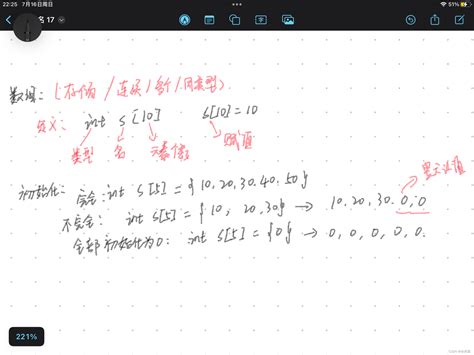 22:25 7月16日周日
51%
名 17
数组:(存储/连续/多个/同类型)
定义: int s[10] s[10]=10
类型 名 元素个数 赋值
初始化: 完全: int s[5]={10,20,30,40,50}
不完全: int s[5]={10, 20,30} → 10,20,30,0,0
全部初始化为0: int s[5]={0} → 0,0,0,0,0.
221%